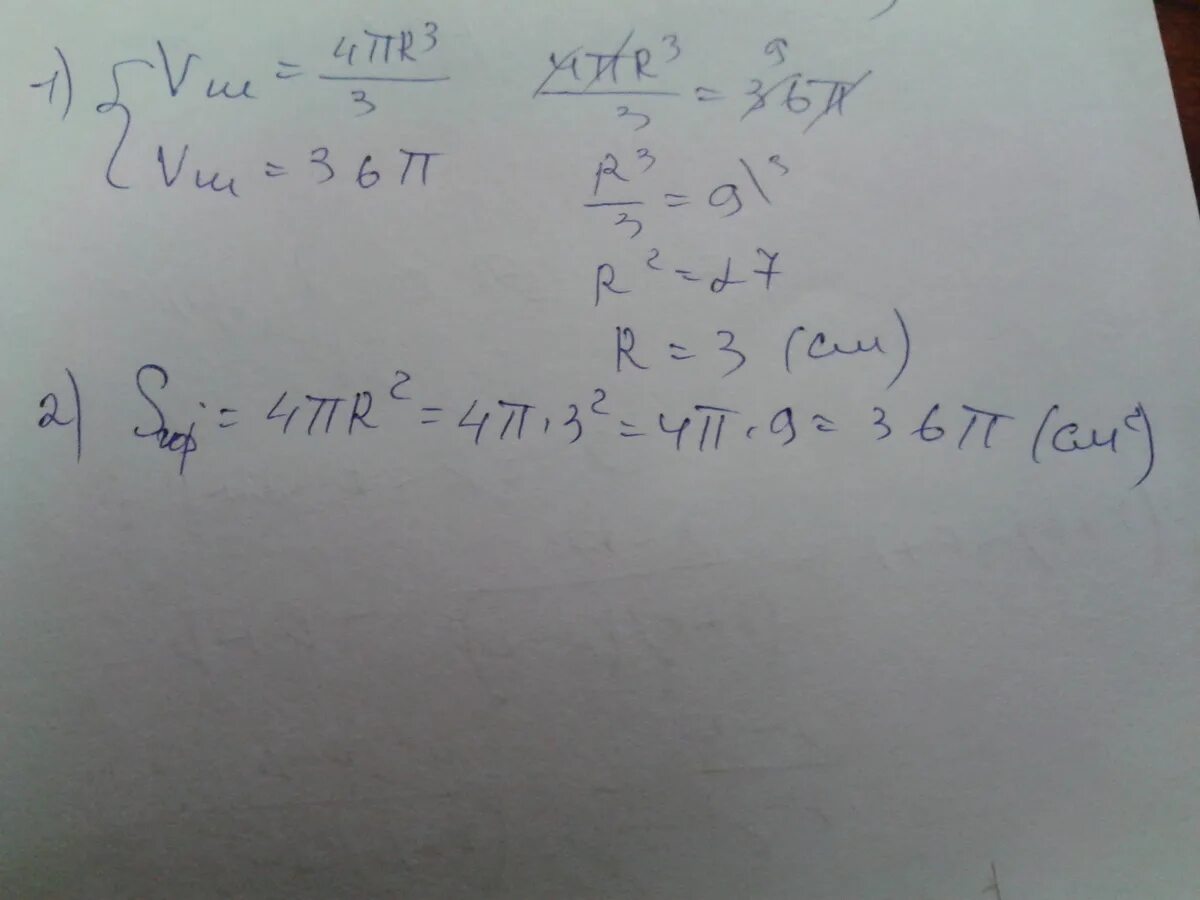 1) { Vш = 4πR³/3
Vш = 36π
4πR³/3 = 36π 9
R³/3 = 9\³
R² = 27
R = 3 (см)
2) Sпов = 4πR² = 4π·3² = 4π·9 = 36π (см²)